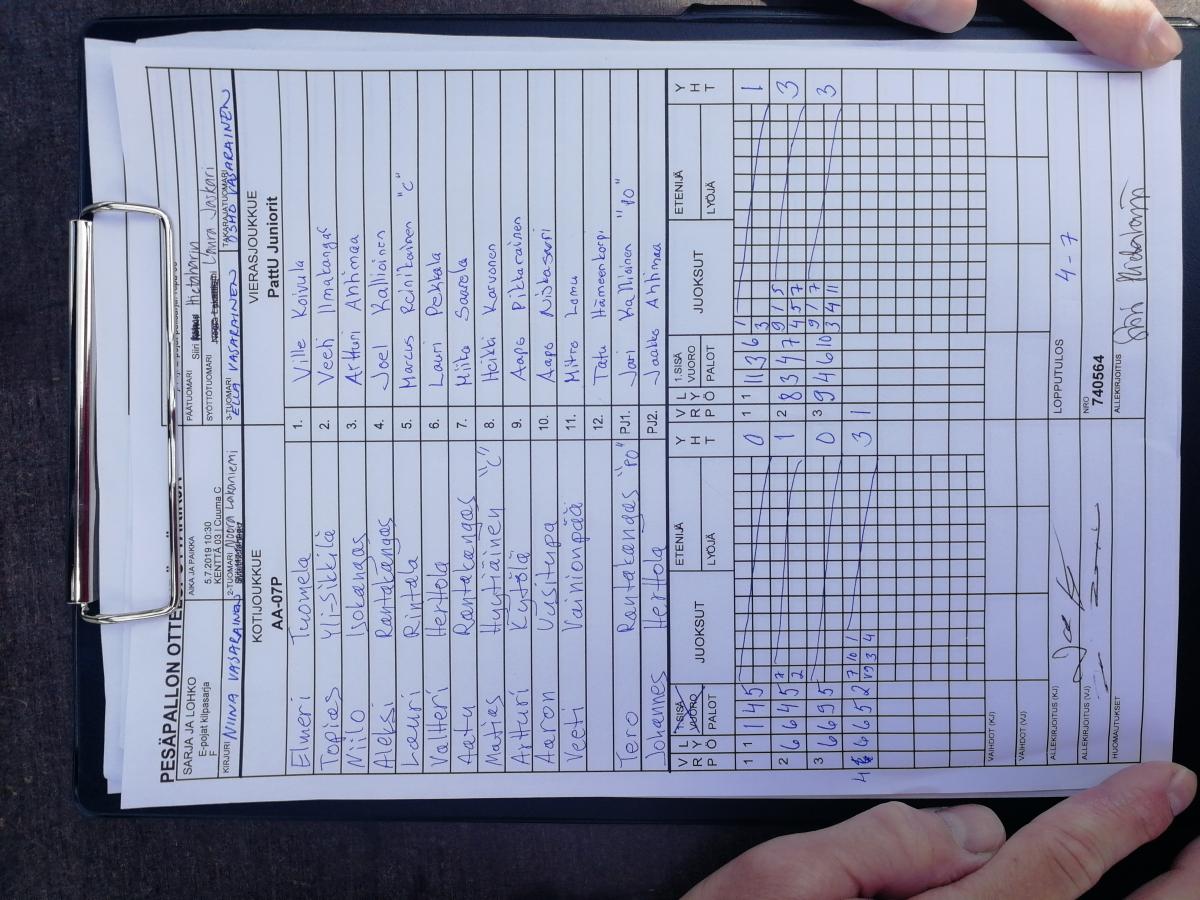 PESÄPALLON OTTE
SARJA JA LOHKO
E-pojat kilpasarja
F
AIKA JA PAIKKA
5.7.2019 10:30
KENTTÄ 03 | Cuuma C
PÄÄTUOMARI Siiri Hietaharin
SYÖTTÖTUOMARI Laura Jaskari
KIRJURI NIINA VASARAINEN
2-TUOMARI Noora Lakaniemi
3-TUOMARI ELLA VASARAINEN
TAKARAJATUOMARI OSMO VASARAINEN
KOTIJOUKKUE
AA-07P
VIERASJOUKKUE
PattU Juniorit
Elmeri Tuomela 1. Ville Koivula
Topias Yli-Sikkilä 2. Veeti Ilmakangas
Niilo Isokangas 3. Artturi Ahtimaa
Aleksi Rantakangas 4. Joel Kallioinen
Lauri Rintala 5. Marcus Reinikainen "C"
Valtteri Herttola 6. Lauri Pekkala
Aatu Rantakangas 7. Miika Saarela
Matias Hyytiäinen "C" 8. Heikki Karvonen
Artturi Kytölä 9. Aapo Pikkarainen
Aaron Uusitupa 10. Aapo Niskasaari
Veeti Vainionpää 11. Mitro Lomu
12. Tatu Hämeenkorpi
Tero Rantakangas "PO" PJ1. Jari Kallioinen "PO"
Johannes Herttola PJ2. Jaakko Ahtimaa
V R P L Y Ö 1.SISÄ VUORO PALOT JUOKSUT ETENIJÄ LYÖJÄ Y H T V R P L Y Ö 1.SISÄ VUORO PALOT JUOKSUT ETENIJÄ LYÖJÄ Y H T
1 1 1 4 5 0 1 1 11 3 6 1 3 1
2 6 6 4 5 7 2 1 2 8 3 4 7 9 1 5 4 5 7 3
3 6 6 9 5 0 3 9 4 6 10 9 1 7 3 4 11 3
4 6 6 5 2 7 10 1 9 3 4 3 1
VAIHDOT (KJ)
VAIHDOT (VJ)
LOPPUTULOS 4-7
ALLEKIRJOITUS (KJ)
ALLEKIRJOITUS (VJ)
NRO
740564
HUOMAUTUKSET
ALLEKIRJOITUS